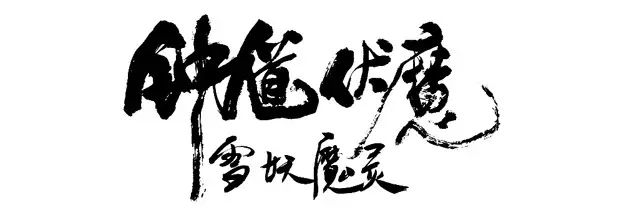 钟馗伏魔
雪妖魔灵